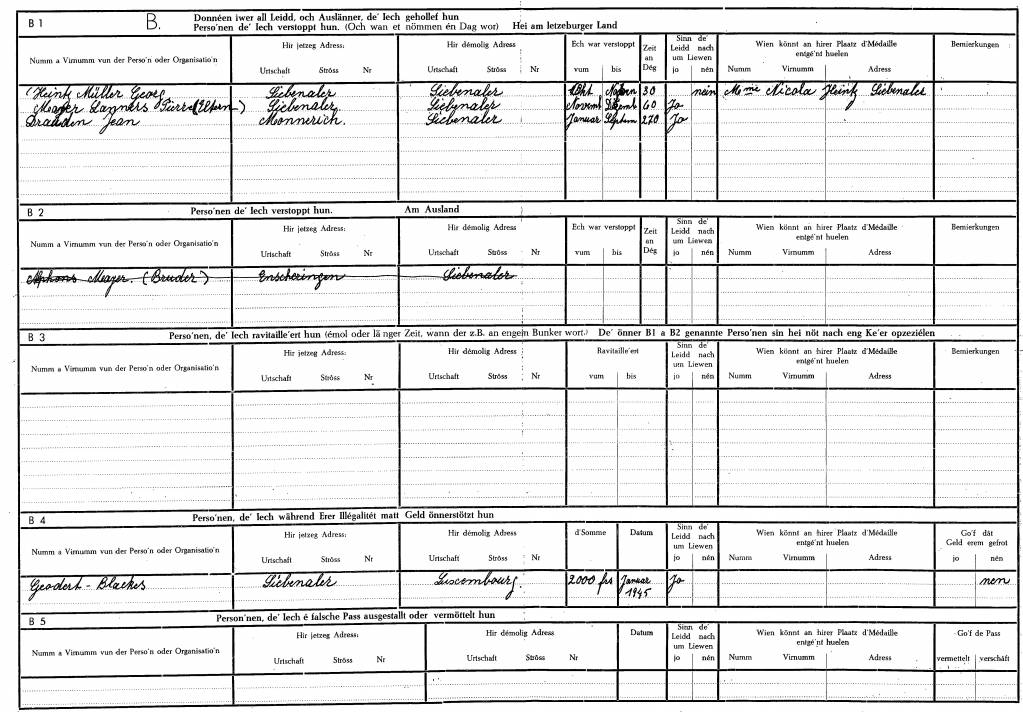 B 1 B. Donnéen iwer all Leidd, och Auslänner, de' Iech gehollef hun
Perso'nen de' Iech verstoppt hun. (Och wan et nömmen én Dag wor) Hei am letzeburger Land
Numm a Virnumm vun der Perso'n oder Organisatio'n Hir jetzeg Adress: Urtschaft Ströss Nr Hir démolig Adress Urtschaft Ströss Nr Ech war verstoppt vum bis Zeit an Dég Sinn de' Leidd nach um Liewen jo nén Wien könnt an hirer Plaatz d'Médaille entgé'nt huelen Numm Virnumm Adress Bemierkungen
Heintz Müller Siebenaler Siebenaler 30 nein Mme Nicola Heintz Siebenaler
Meyer Lanners Siebenaler Siebenaler Novemb 60 Jo
Jean Monnerich. Siebenaler Januar 270 Jo
B 2 Perso'nen de' Iech verstoppt hun. Am Ausland
Numm a Virnumm vun der Perso'n oder Organisatio'n Hir jetzeg Adress: Urtschaft Ströss Nr Hir démolig Adress Urtschaft Ströss Nr Ech war verstoppt vum bis Zeit an Dég Sinn de' Leidd nach um Liewen jo nén Wien könnt an hirer Plaatz d'Médaille entgé'nt huelen Numm Virnumm Adress Bemierkungen
Alphons Meyer. (Bruder) Enscheringen Siebenaler
B 3 Perso'nen, de' Iech ravitaille'ert hun (émol oder länger Zeit, wann der z.B. an engem Bunker wort.) De' önner B1 a B2 genannte Perso'nen sin hei nöt nach eng Ke'er opzeziélen
Numm a Virnumm vun der Perso'n oder Organisatio'n Hir jetzeg Adress: Urtschaft Ströss Nr Hir démolig Adress Urtschaft Ströss Nr Ravitaille'ert vum bis Sinn de' Leidd nach um Liewen jo nén Wien könnt an hirer Plaatz d'Médaille entgé'nt huelen Numm Virnumm Adress Bemierkungen
B 4 Perso'nen, de' Iech während Erer Illégalitét matt Geld önnerstötzt hun
Numm a Virnumm vun der Perso'n oder Organisatio'n Hir jetzeg Adress: Urtschaft Ströss Nr Hir démolig Adress Urtschaft Ströss Nr d'Somme Datum Sinn de' Leidd nach um Liewen jo nén Wien könnt an hirer Plaatz d'Médaille entgé'nt huelen Numm Virnumm Adress Go'f dât Geld erem gefrot jo nén
Siebenaler Luxembourg. 2000 frs Januar 1945 Jo nen
B 5 Person'nen, de' Iech é falsche Pass ausgestallt oder vermöttelt hun
Numm a Virnumm vun der Perso'n oder Organisatio'n Hir jetzeg Adress: Urtschaft Ströss Nr Hir démolig Adress Urtschaft Ströss Nr Datum Sinn de' Leidd nach um Liewen jo nén Wien könnt an hirer Plaatz d'Médaille entgé'nt huelen Numm Virnumm Adress Go'f de Pass vermettelt verschâft